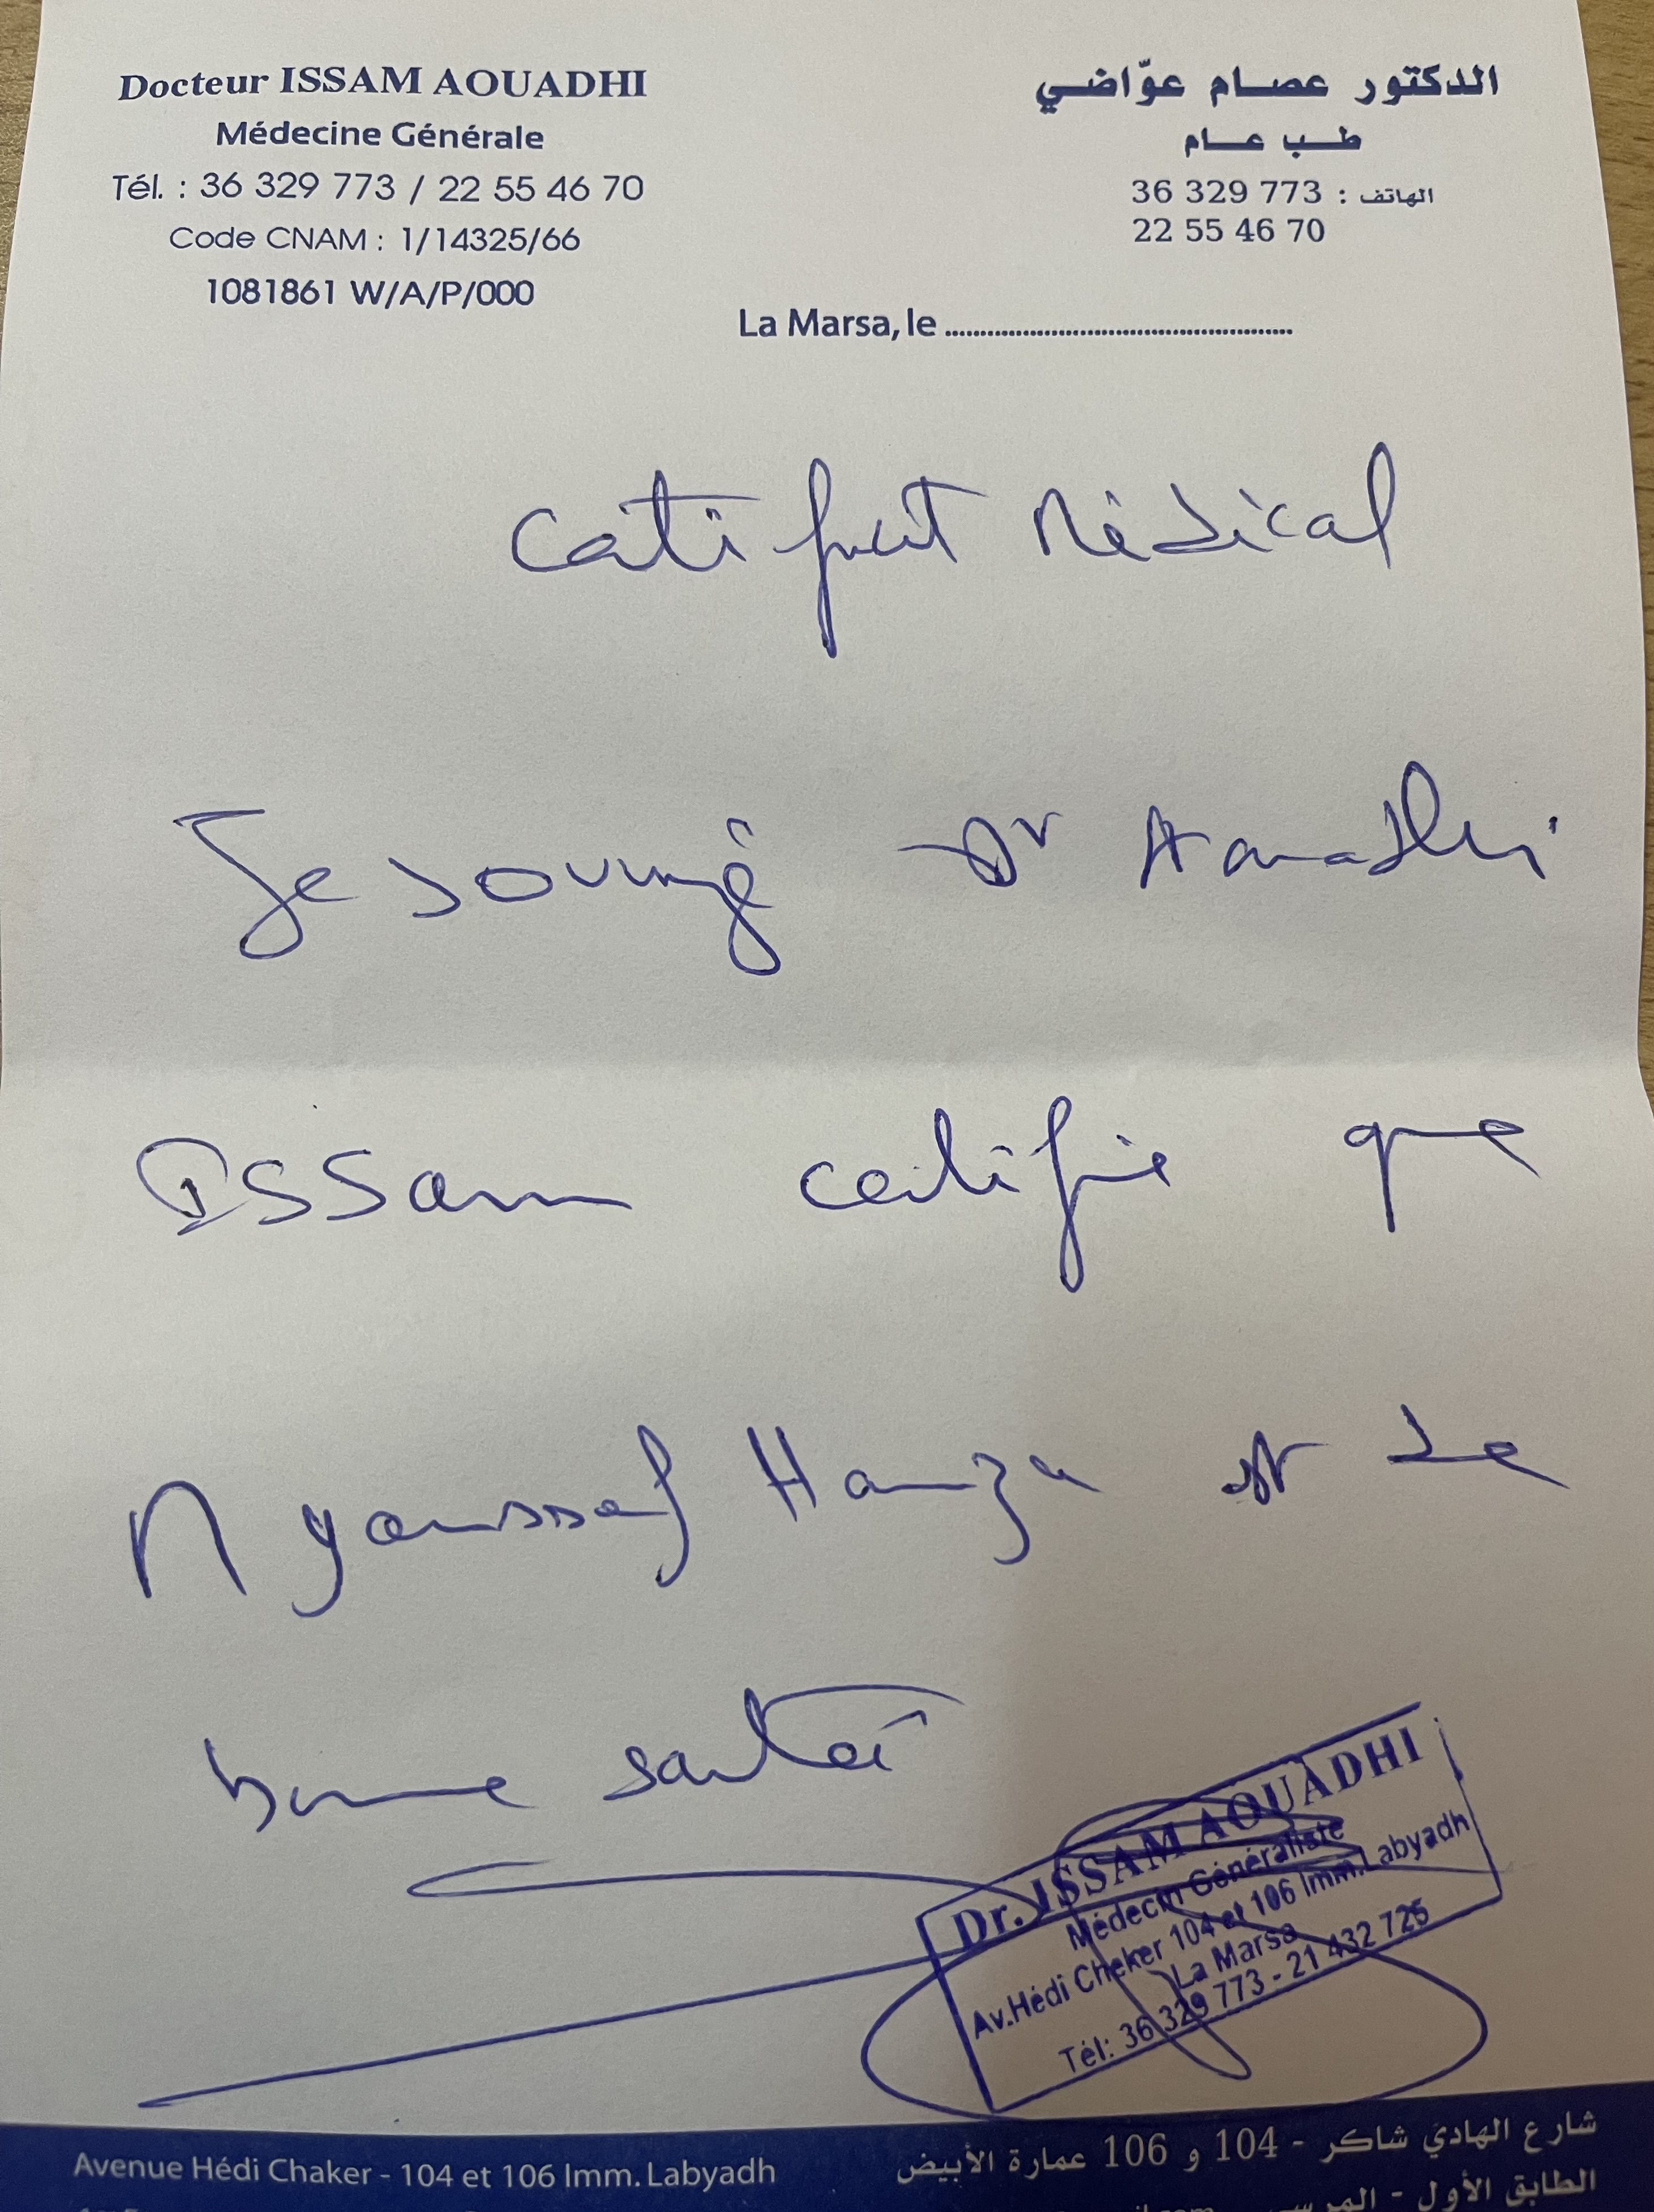 Docteur ISSAM AOUADHI
Médecine Générale
Tél. : 36 329 773 / 22 55 46 70
Code CNAM : 1/14325/66
1081861 W/A/P/000
الدكتور عصام عوّاضي
طب عام
الهاتف : 36 329 773
22 55 46 70
La Marsa, le
Certificat Médical
Je soussigné Dr Aouadhi
Issam certifie que
M Youssef Hamza est de
bonne santé
Dr. ISSAM AOUADHI
Médecin Généraliste
Av.Hédi Cheker 104 et 106 Imm.Labyadh
La Marsa
Tél: 36 329 773 - 21 432 725
Avenue Hédi Chaker - 104 et 106 Imm. Labyadh
شارع الهادي شاكر - 104 و 106 عمارة الأبيض
الطابق الأول -